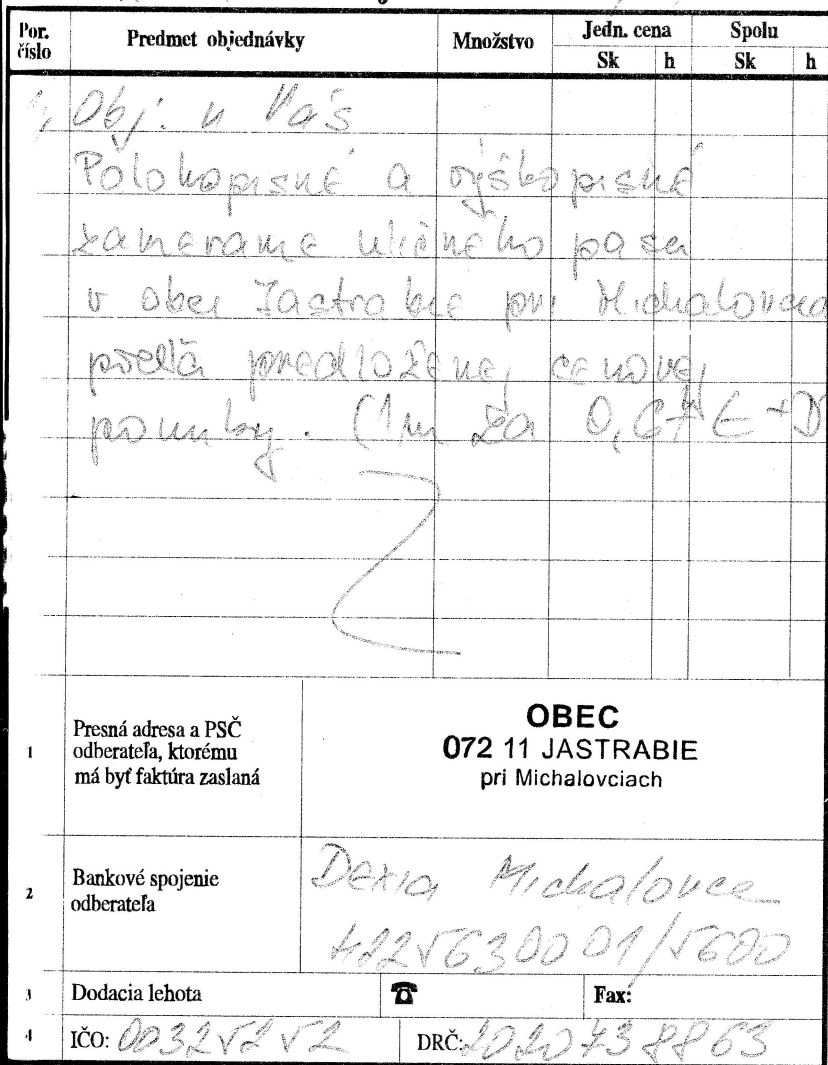 Por. číslo Predmet objednávky Množstvo Jedn. cena Spolu
Sk h Sk h
1, Obj. u Vás
Polohopisné a výškopisné
zameranie uličného pasu
v obci Jastrabie pri Michalovciach
podľa predloženej cenovej
ponuky. (1m za 0,67 € + D
1 Presná adresa a PSČ
odberateľa, ktorému
má byť faktúra zaslaná
OBEC
072 11 JASTRABIE
pri Michalovciach
2 Bankové spojenie
odberateľa
Dexia Michalovce
4225630001/5600
3 Dodacia lehota ☎ Fax:
4 IČO: 00325252 DRČ: 2020738863